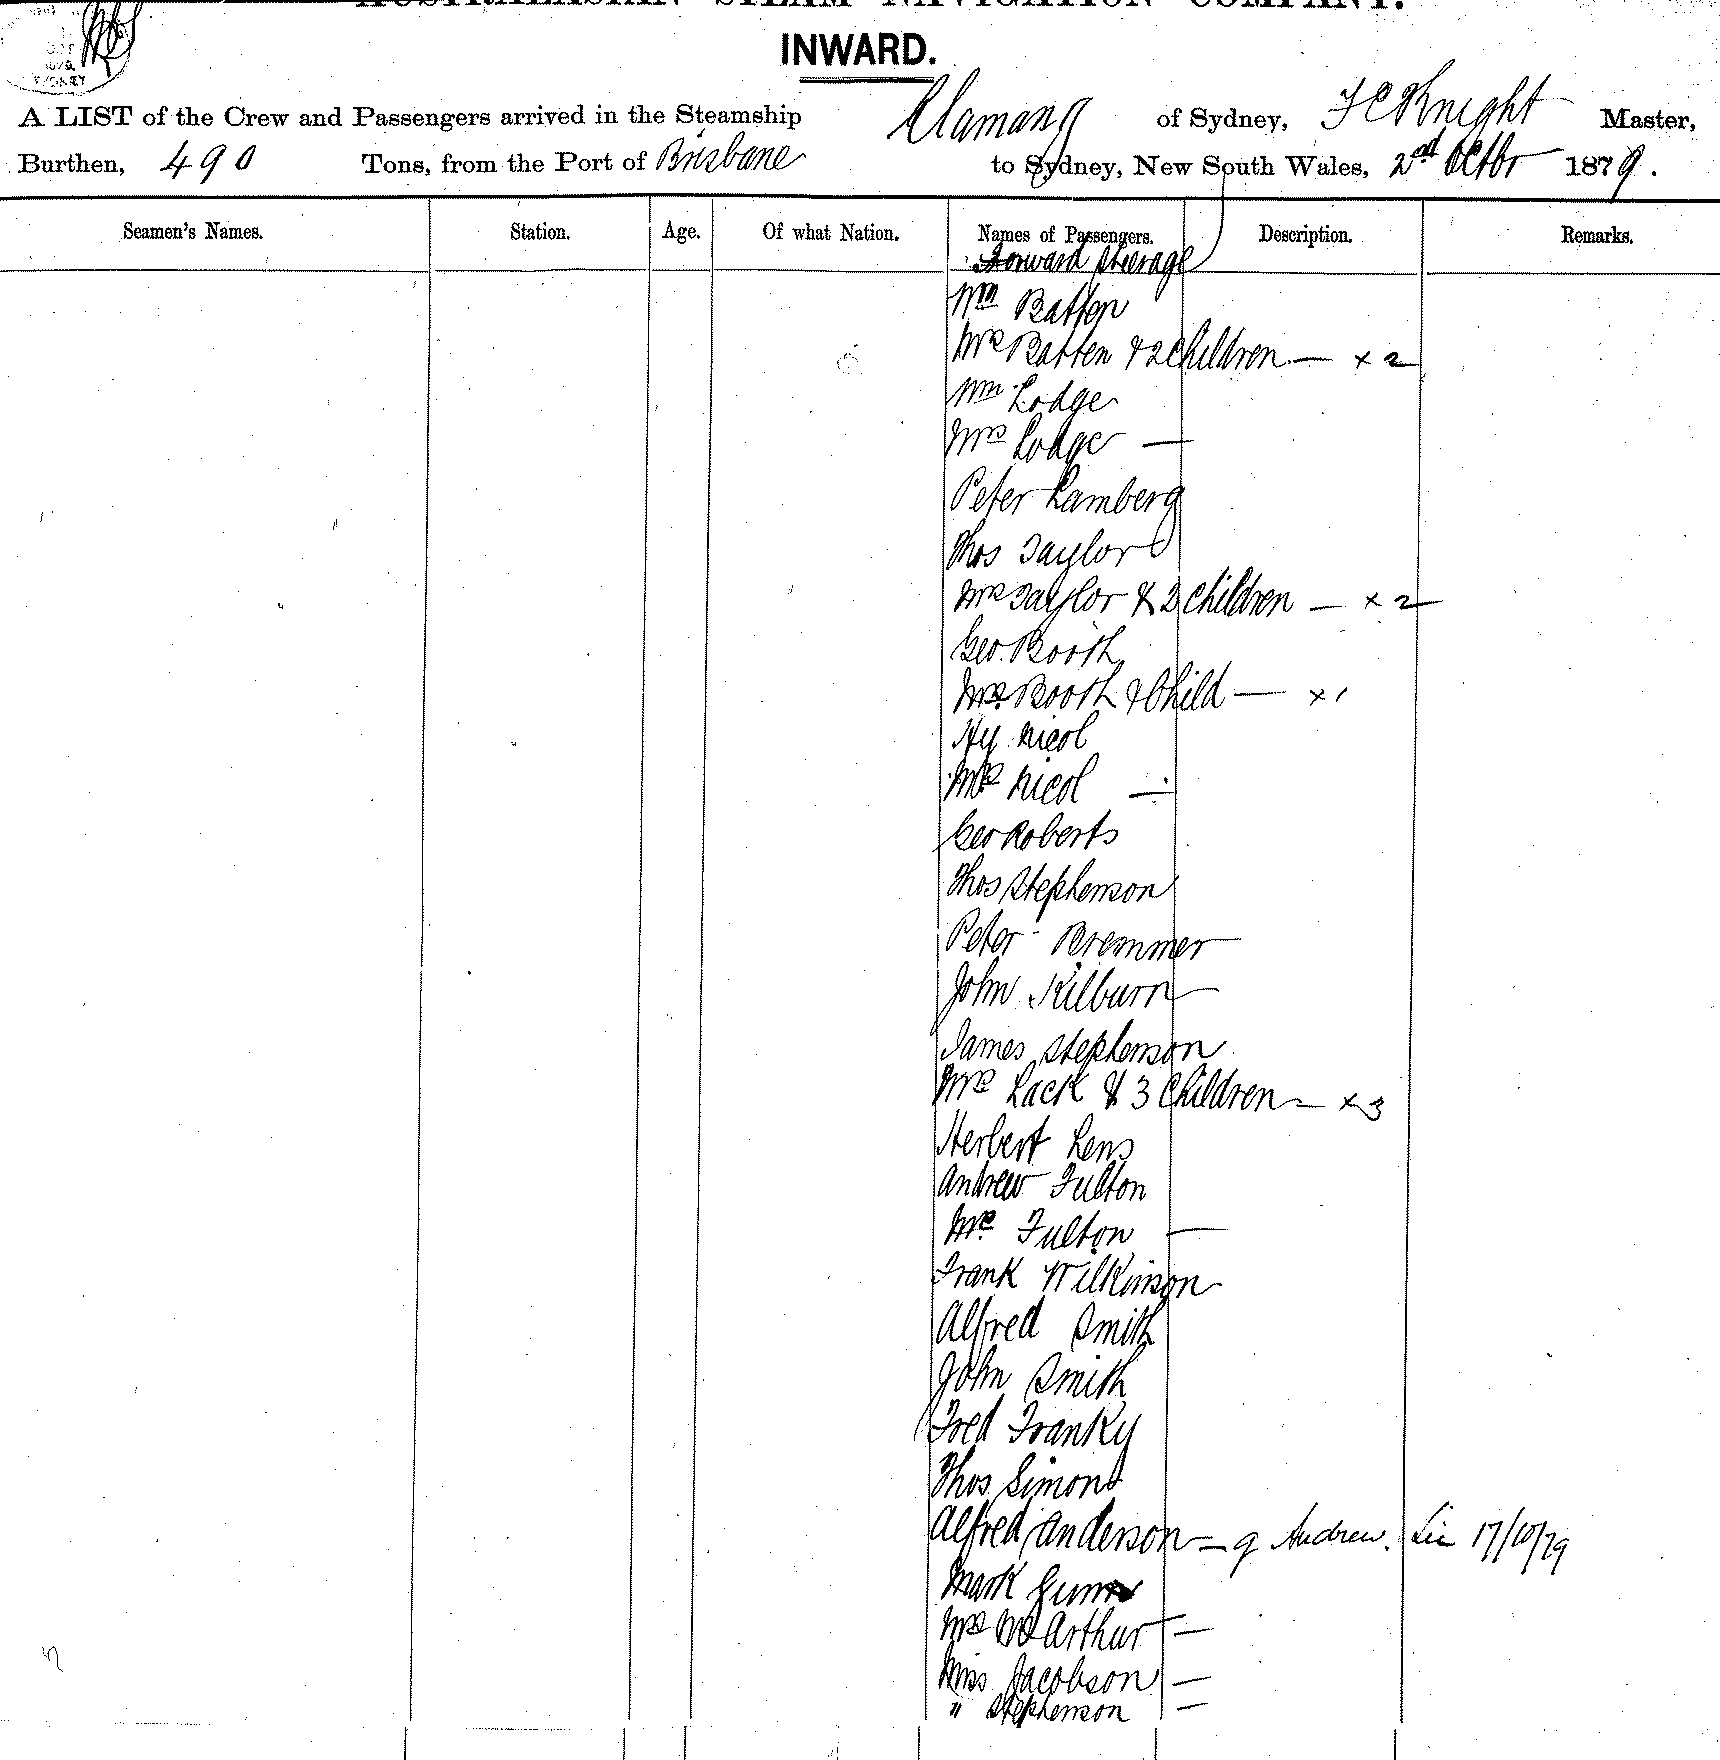 AUSTRALASIAN STEAM NAVIGATION COMPANY.
INWARD.
SYDNEY
A LIST of the Crew and Passengers arrived in the Steamship Elamang of Sydney, F C Knight Master,
Burthen, 490 Tons, from the Port of Brisbane to Sydney, New South Wales, 2nd Octbr 1879.
Seamen's Names. Station. Age. Of what Nation. Names of Passengers. Description. Remarks.
Forward Steerage
Wm Batten
Mrs Batten & 2 Children — x 2
Wm Lodge
Mrs Lodge —
Peter Lamberg
Thos Taylor
Mrs Taylor & 2 Children — x 2
Geo. Booth
Mrs. Booth & Child — x 1
Hy Nicol
Mrs Nicol —
Geo Roberts
Thos Stephenson
Peter Bremmer
John Kilburn
James Stephenson
Mrs Lack & 3 Children — x 3
Herbert Lens
Andrew Fulton
Mrs Fulton —
Frank Wilkinson
Alfred Smith
John Smith
Fred Franky
Thos. Simons
Alfred Anderson — q Andrew. Lie 17/10/79
Mark Gunn
Mrs McArthur —
Miss Jacobson —
" Stephenson —